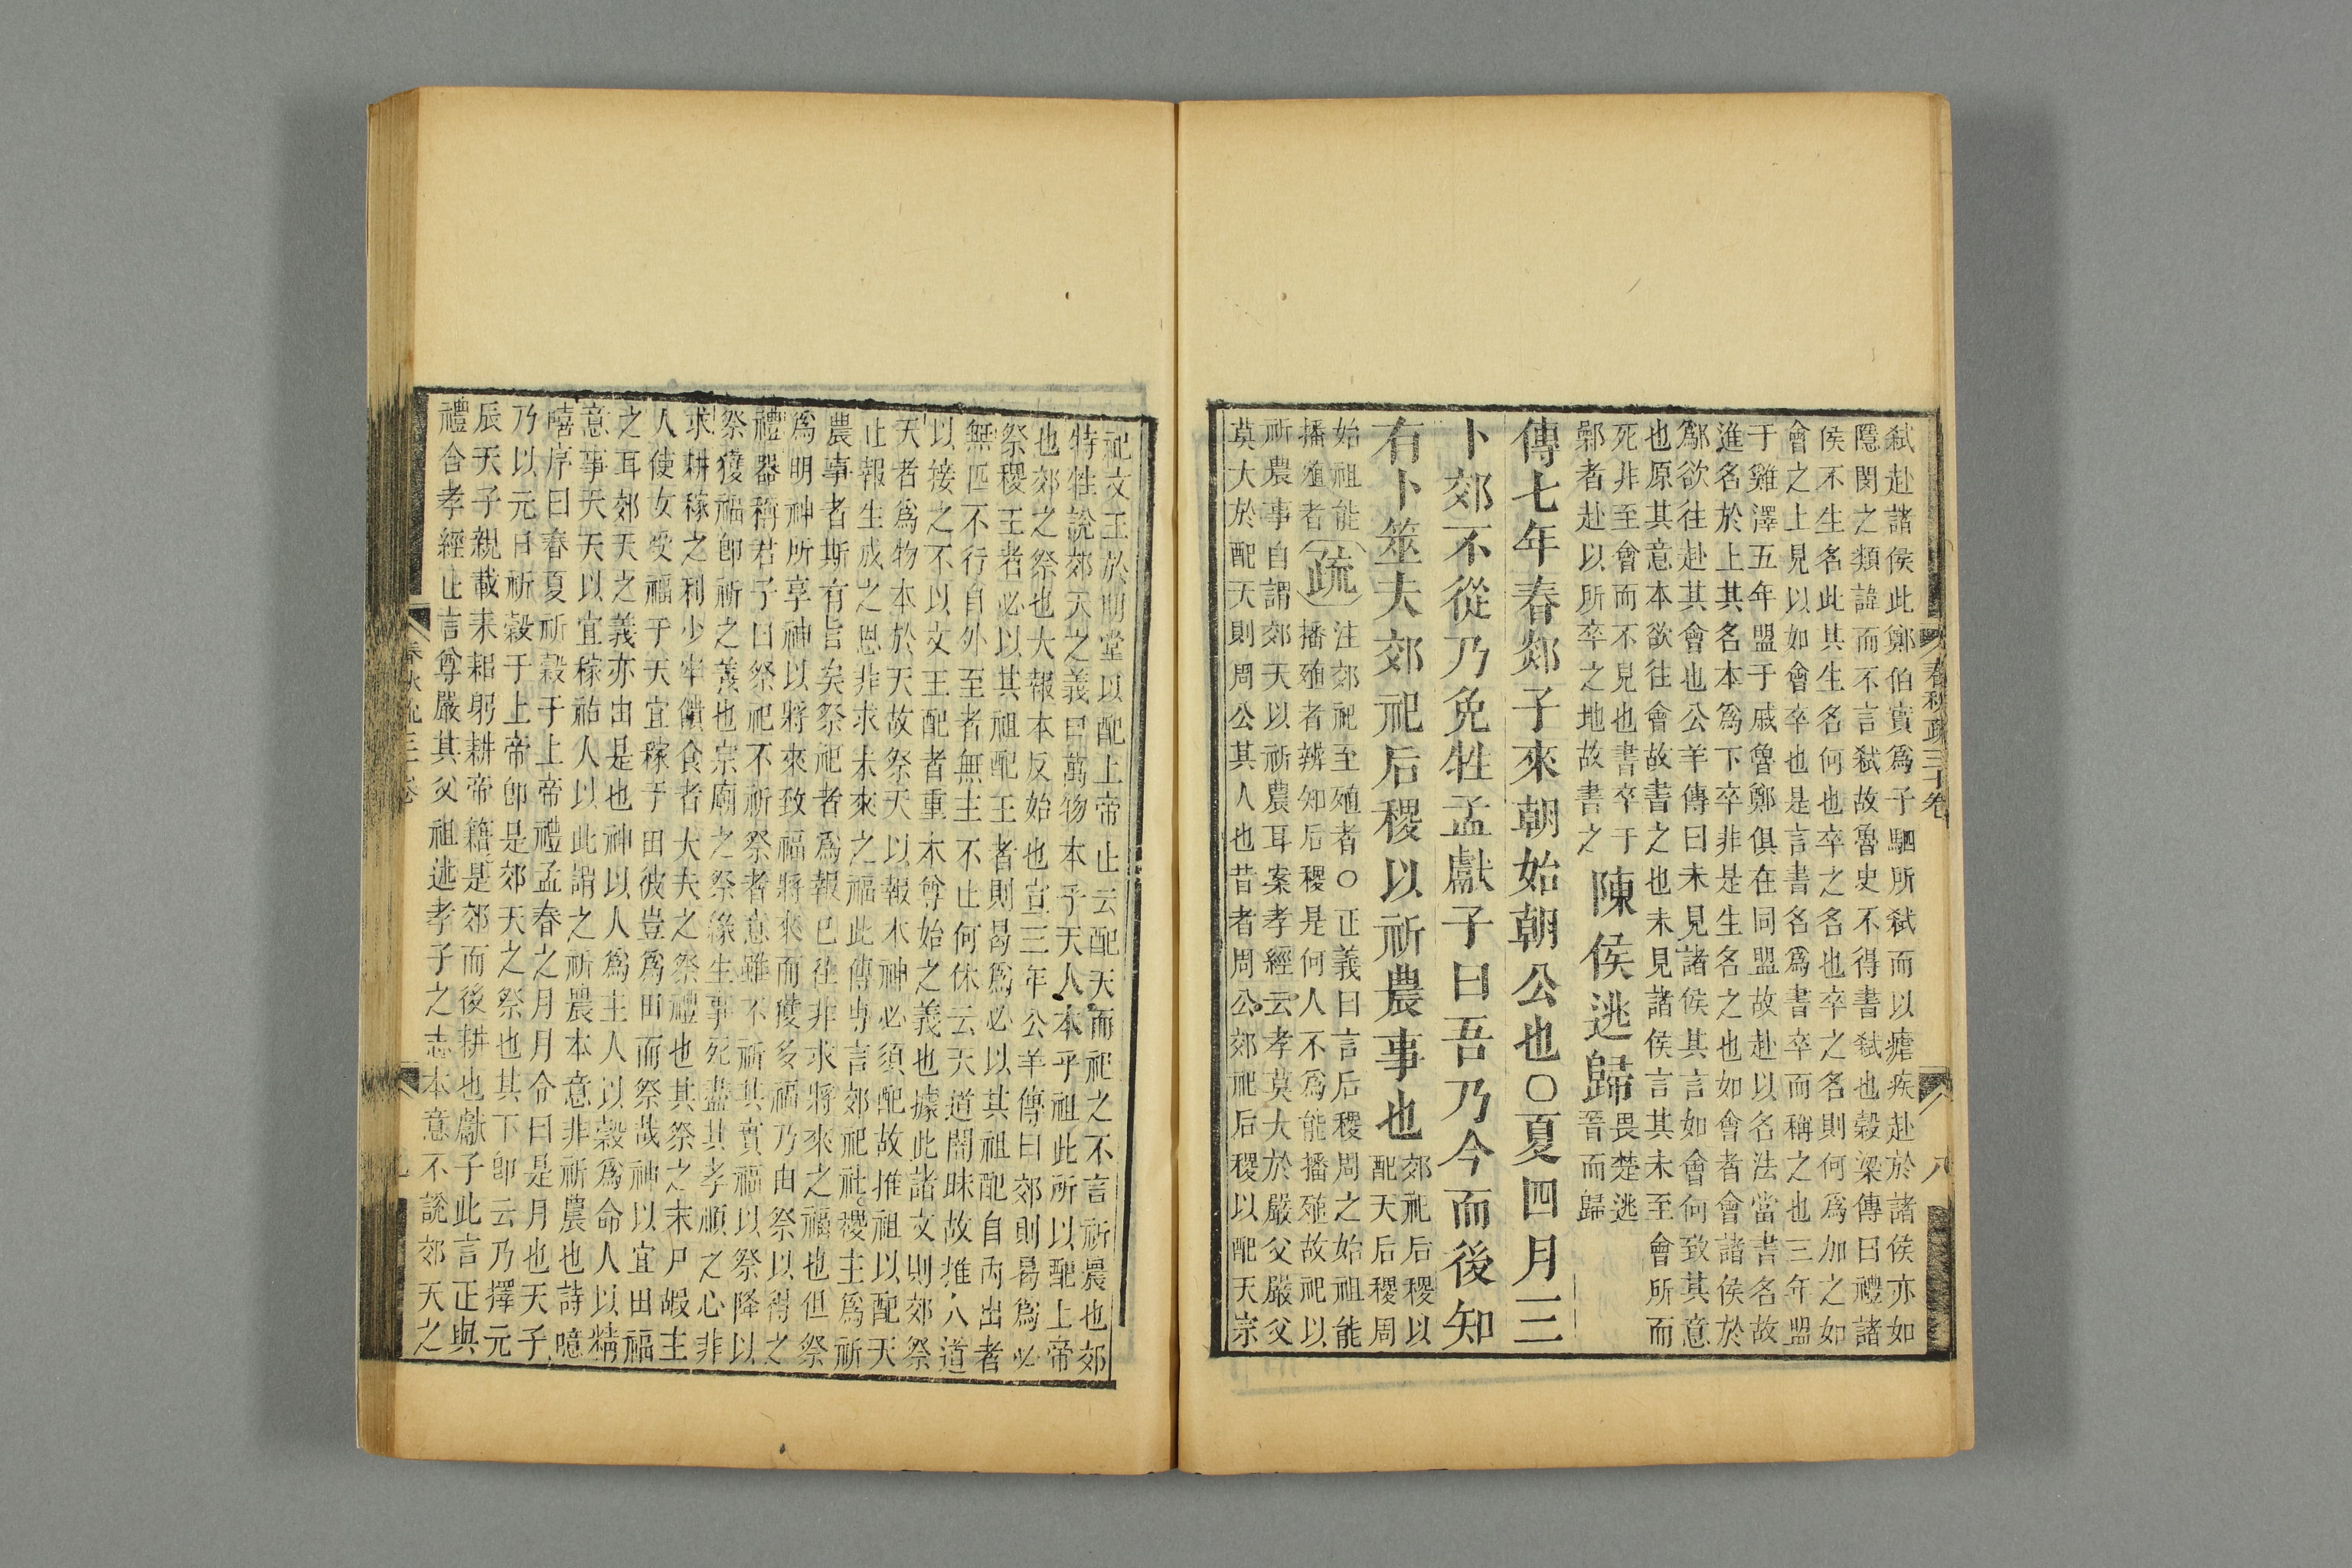 弑赴諸侯此鄭伯實爲子駟所弑而以瘧疾赴於諸侯亦如
隱閔之類諱而不言弑故魯史不得書弑也穀梁傳曰禮諸
侯不生名此其生名何也卒之名也卒之名則何爲加之如
會之上見以如會卒也是言書名爲書卒而稱之也三年盟
于雞澤五年盟于戚魯鄭俱在同盟故赴以名法當書名故
進名於上其名本爲下卒非是生名之也如會者會諸侯於
鄬欲往赴其會也公羊傳曰未見諸侯其言如會何致其意
也原其意本欲往會故書之也未見諸侯言其未至會所而
死非至會而不見也書卒于
鄵者赴以所卒之地故書之
陳侯逃歸
畏楚逃
晉而歸
傳七年春郯子來朝始朝公也○夏四月三
卜郊不從乃免牲孟獻子曰吾乃今而後知
有卜筮夫郊祀后稷以祈農事也
郊祀后稷以
配天后稷周
始祖能
播殖者
疏
注郊祀至殖者○正義曰言后稷周之始祖能
播殖者辨知后稷是何人不爲能播殖故祀以
祈農事自謂郊天以祈農耳案孝經云孝莫大於嚴父嚴父
莫大於配天則周公其人也昔者周公郊祀后稷以配天宗
春秋疏三十卷
八
祀文王於明堂以配上帝止云配天而祀之不言祈農也郊
特牲說郊天之義曰萬物本于天人本乎祖此所以配上帝
也郊之祭也大報本反始也宣三年公羊傳曰郊則曷爲必
祭稷王者必以其祖配王者則曷爲必以其祖配自內出者
無匹不行自外至者無主不止何休云天道闇昧故推人道
以接之不以文王配者重本尊始之義也據此諸文則郊祭
天者爲物本於天故祭天以報本神必須配故推祖以配天
止報生成之恩非求未來之福此傳專言郊祀社稷主爲祈
農事者斯有旨矣祭祀者爲報已往非求將來之福也但祭
爲明神所享神以將來致福將來而獲多福乃由祭以得之
禮器稱君子曰祭祀不祈祭者意雖不祈其實福以祭降以
祭獲福卽祈之義也宗廟之祭緣生事死盡其孝順之心非
求耕稼之利少牢饋食者大夫之祭禮也其祭之末尸嘏主
人使女受福于天宜稼于田彼豈爲田而祭哉神以宜田福
之耳郊天之義亦由是也神以人爲主人以穀爲命人以精
意事天天以宜稼祐人以此謂之祈農本意非祈農也詩噫
嘻序曰春夏祈穀于上帝禮孟春之月月令曰是月也天子
乃以元日祈穀于上帝卽是郊天之祭也其下卽云乃擇元
辰天子親載耒耜躬耕帝籍是郊而後耕也獻子此言正與
禮合孝經止言尊嚴其父祖述孝子之志本意不說郊天之